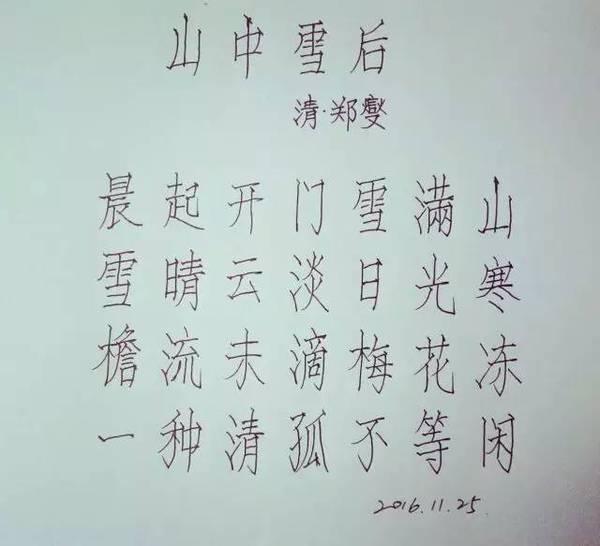 山中雪后
清·郑燮
晨起开门雪满山
雪晴云淡日光寒
檐流未滴梅花冻
一种清孤不等闲
2016.11.25.